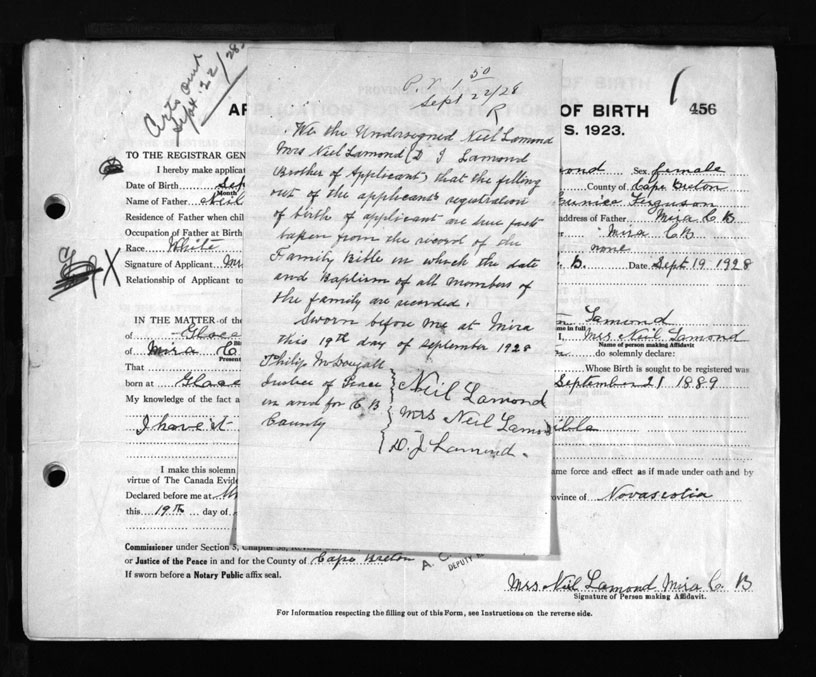 Sept 22/28
P. V. 1 50
Sept 22/28
R
OF BIRTH 456
S. 1923.
We the Undersigned Neil Lamond
Mrs Neil Lamond D J Lamond
Brother of Applicant, that the filling
out of the applicants registration
of birth of applicant are true facts
taken from the record of the
Family Bible in which the date
and Baptism of all members of
the family are recorded.
Sworn before me at Mira
this 19th day of September 1928
Philip McDougall
Justice of Peace
in and for C B
County
Neil Lamond
Mrs Neil Lamond
D. J Lamond.
TO THE REGISTRAR GEN
I hereby make applicat mond Sex female
Date of Birth Sep County of Cape Breton
Month
Name of Father Neil Eunice Ferguson
Residence of Father when chil address of Father Mira C B
Occupation of Father at Birth Mira C B
Race White none
Signature of Applicant Mr B. Date Sept 19 1928
Relationship of Applicant to
IN THE MATTER of the Lamond
of Glace I, Mrs Neil Lamond
Name of person making Affidavit
of Mira C do solemnly declare:
Present
That Whose Birth is sought to be registered was
born at Glace September 21 1889
My knowledge of the fact a
I have it
I make this solemn ame force and effect as if made under oath and by
virtue of The Canada Evide
Declared before me at Mi rovince of Novascotia
this 19th day of
Commissioner under Section 5, Chapter
or Justice of the Peace in and for the County of Cape Breton
DEPUTY
If sworn before a Notary Public affix seal.
Mrs Neil Lamond Mira C. B
Signature of Person making Affidavit.
For Information respecting the filling out of this Form, see Instructions on the reverse side.